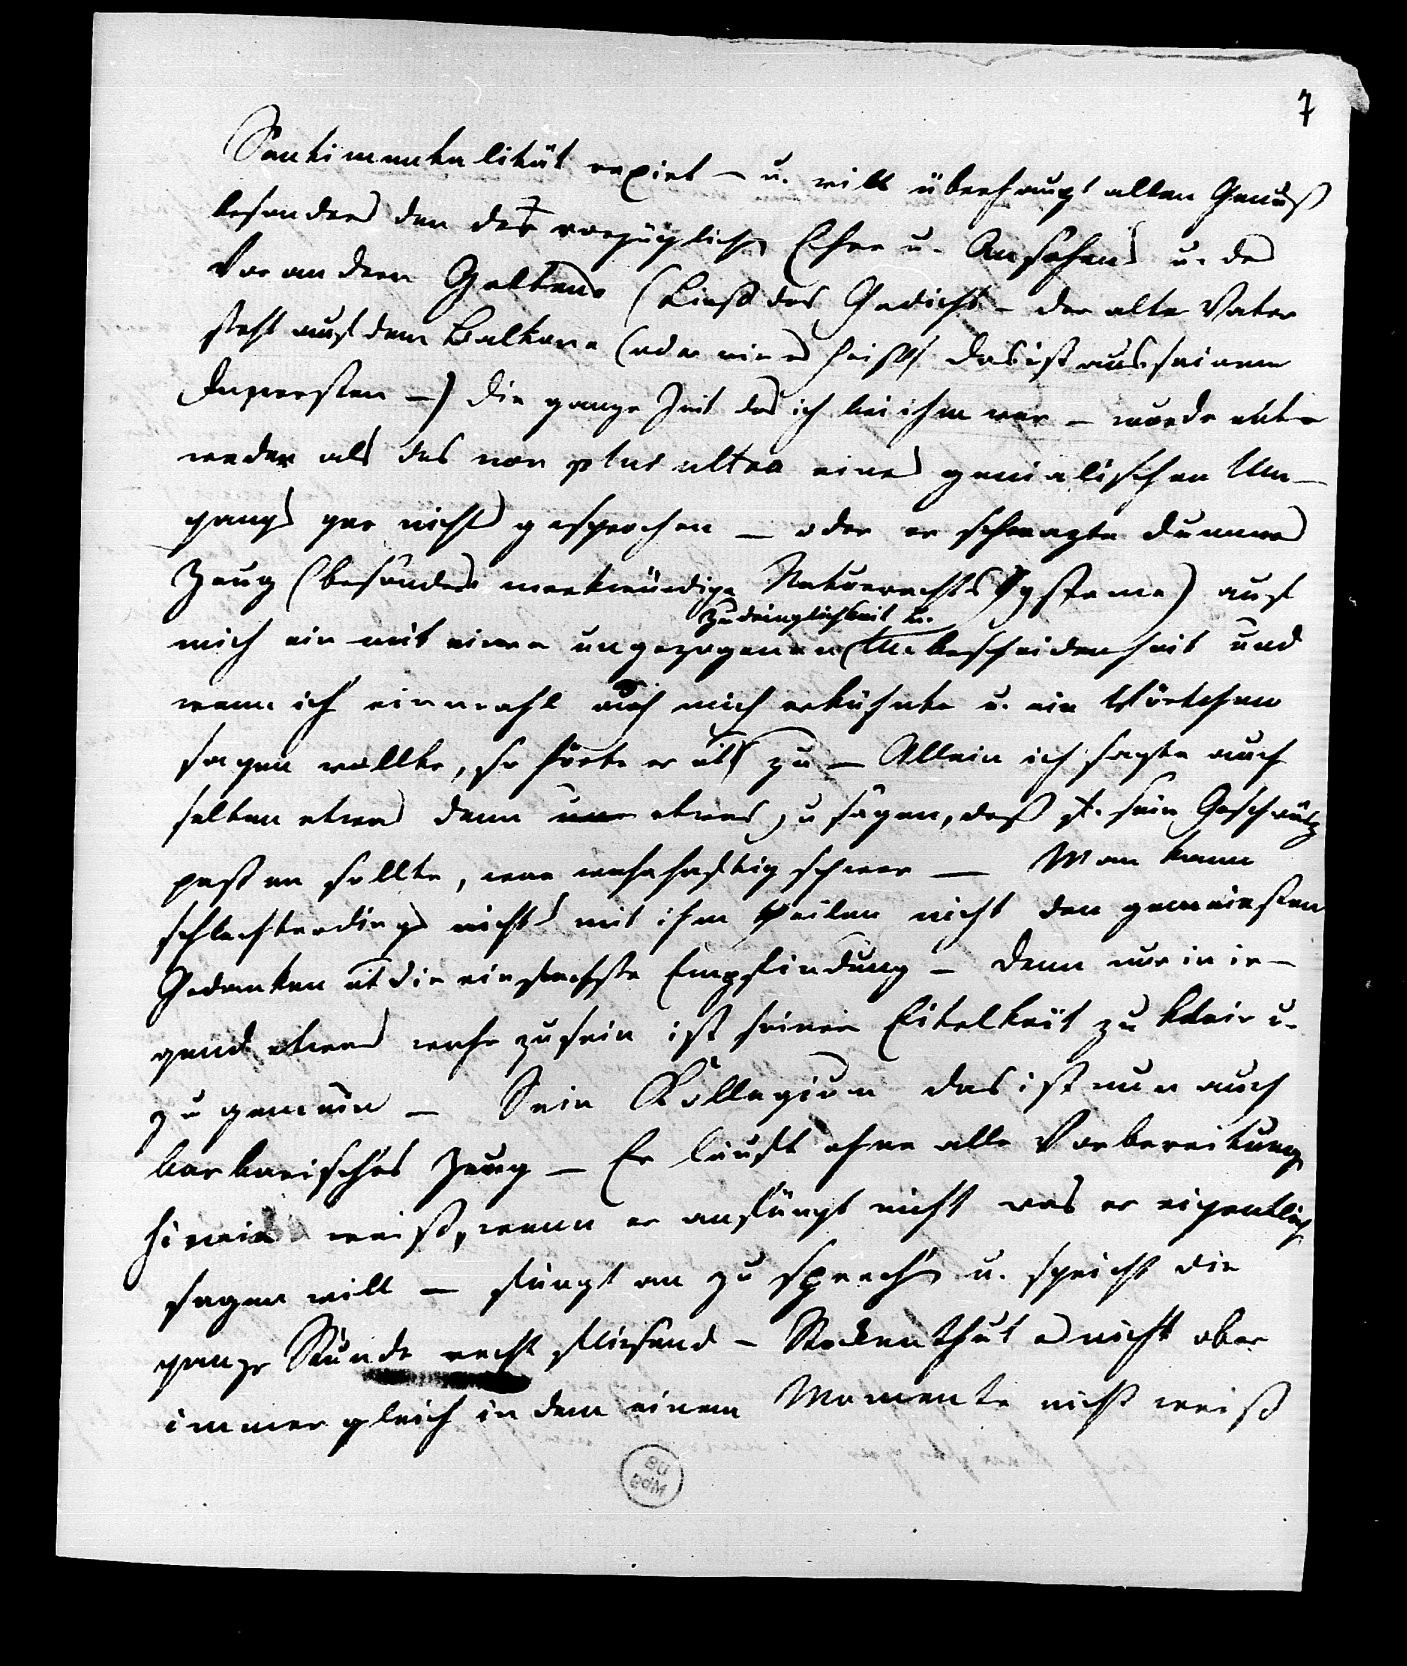 7
Sentimentalität expirt – u. will überhaupt allen Genuß
besonders den des vorzüglich Ehre u. Ansehens u. des
Vor andern Geltens (Ließ das Gedicht – der alte Vater
steht auf dem Balkone (oder wie es heißt das ist aus seinem
Innersten –) Die ganze Zeit das ich bei ihm war – wurde ent
weder als das non plus ultra eines genialischen Um–
gangs gar nichts gesprochen – oder er schwazte dummes
Zeug (besonders merkwürdige Naturrechts Systeme) auf
Zudringlichkeit u.
mich ein mit einer ungezogenen Unbescheidenheit und
wenn ich einmahl auch mich erkühnte u. ein Wörtchen
sagen wollte, so hörte er nicht zu – Allein ich sagte auch
selten etwas denn etwas zu sagen, daß z. sein Geschwätz
passen sollte, war wahrhaftig schwer – Man kann
schlechterdings nichts mit ihm theilen nicht den gemeinsten
Gedanken nicht die einfachste Empfindung – denn nur in ir–
gend etwas wahr zu sein ist seiner Eitelkeit zu klein u.
zu gemein – Sein Kollegium das ist nun auch
barbarisches Zeug – Er läuft ohne alle Vorbereitung
hinein weiß, wenn er anfängt nicht was er eigentlich
sagen will – fängt an zu sprech u. spricht die
ganze Stunde recht fliesend – Stocken thut er nicht aber
immer gleich in dem einem Momente nicht weiß